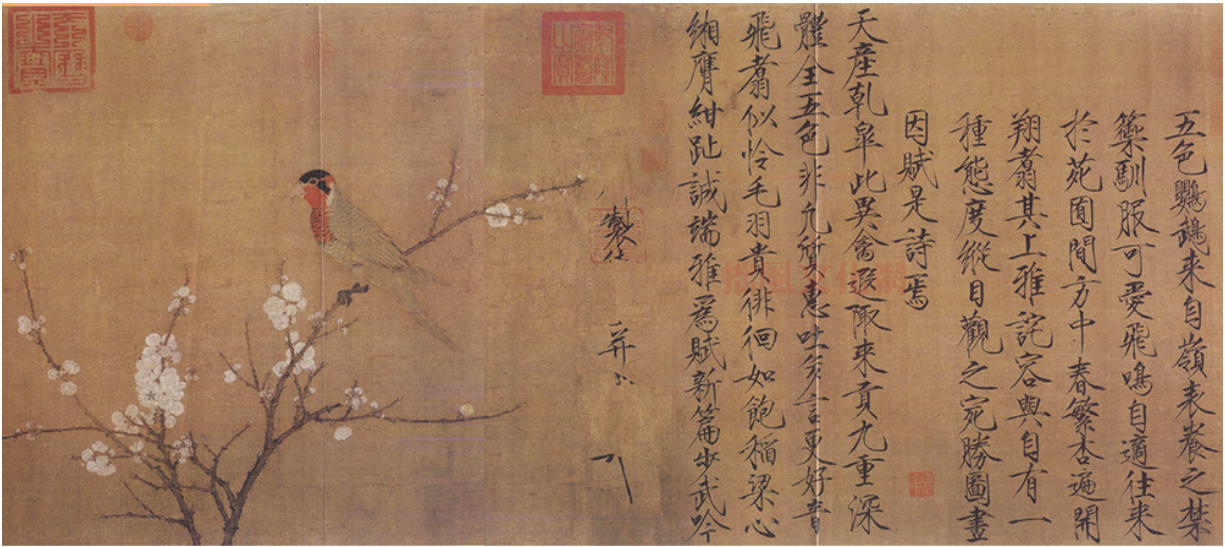 五色鸚鵡来自嶺表養之禁
籞馴服可愛飛鳴自適往来
於苑囿間方中春繁杏遍開
翔翥其上雅詫容與自有一
種態度縱目觀之宛勝圖畫
因賦是詩焉
天産乾皋此異禽遐陬来貢九重深
體全五色非凡質惠吐多言更好音
飛翥似怜毛羽貴徘徊如飽稻粱心
緗膺紺趾誠端雅爲賦新篇步武吟
製
并